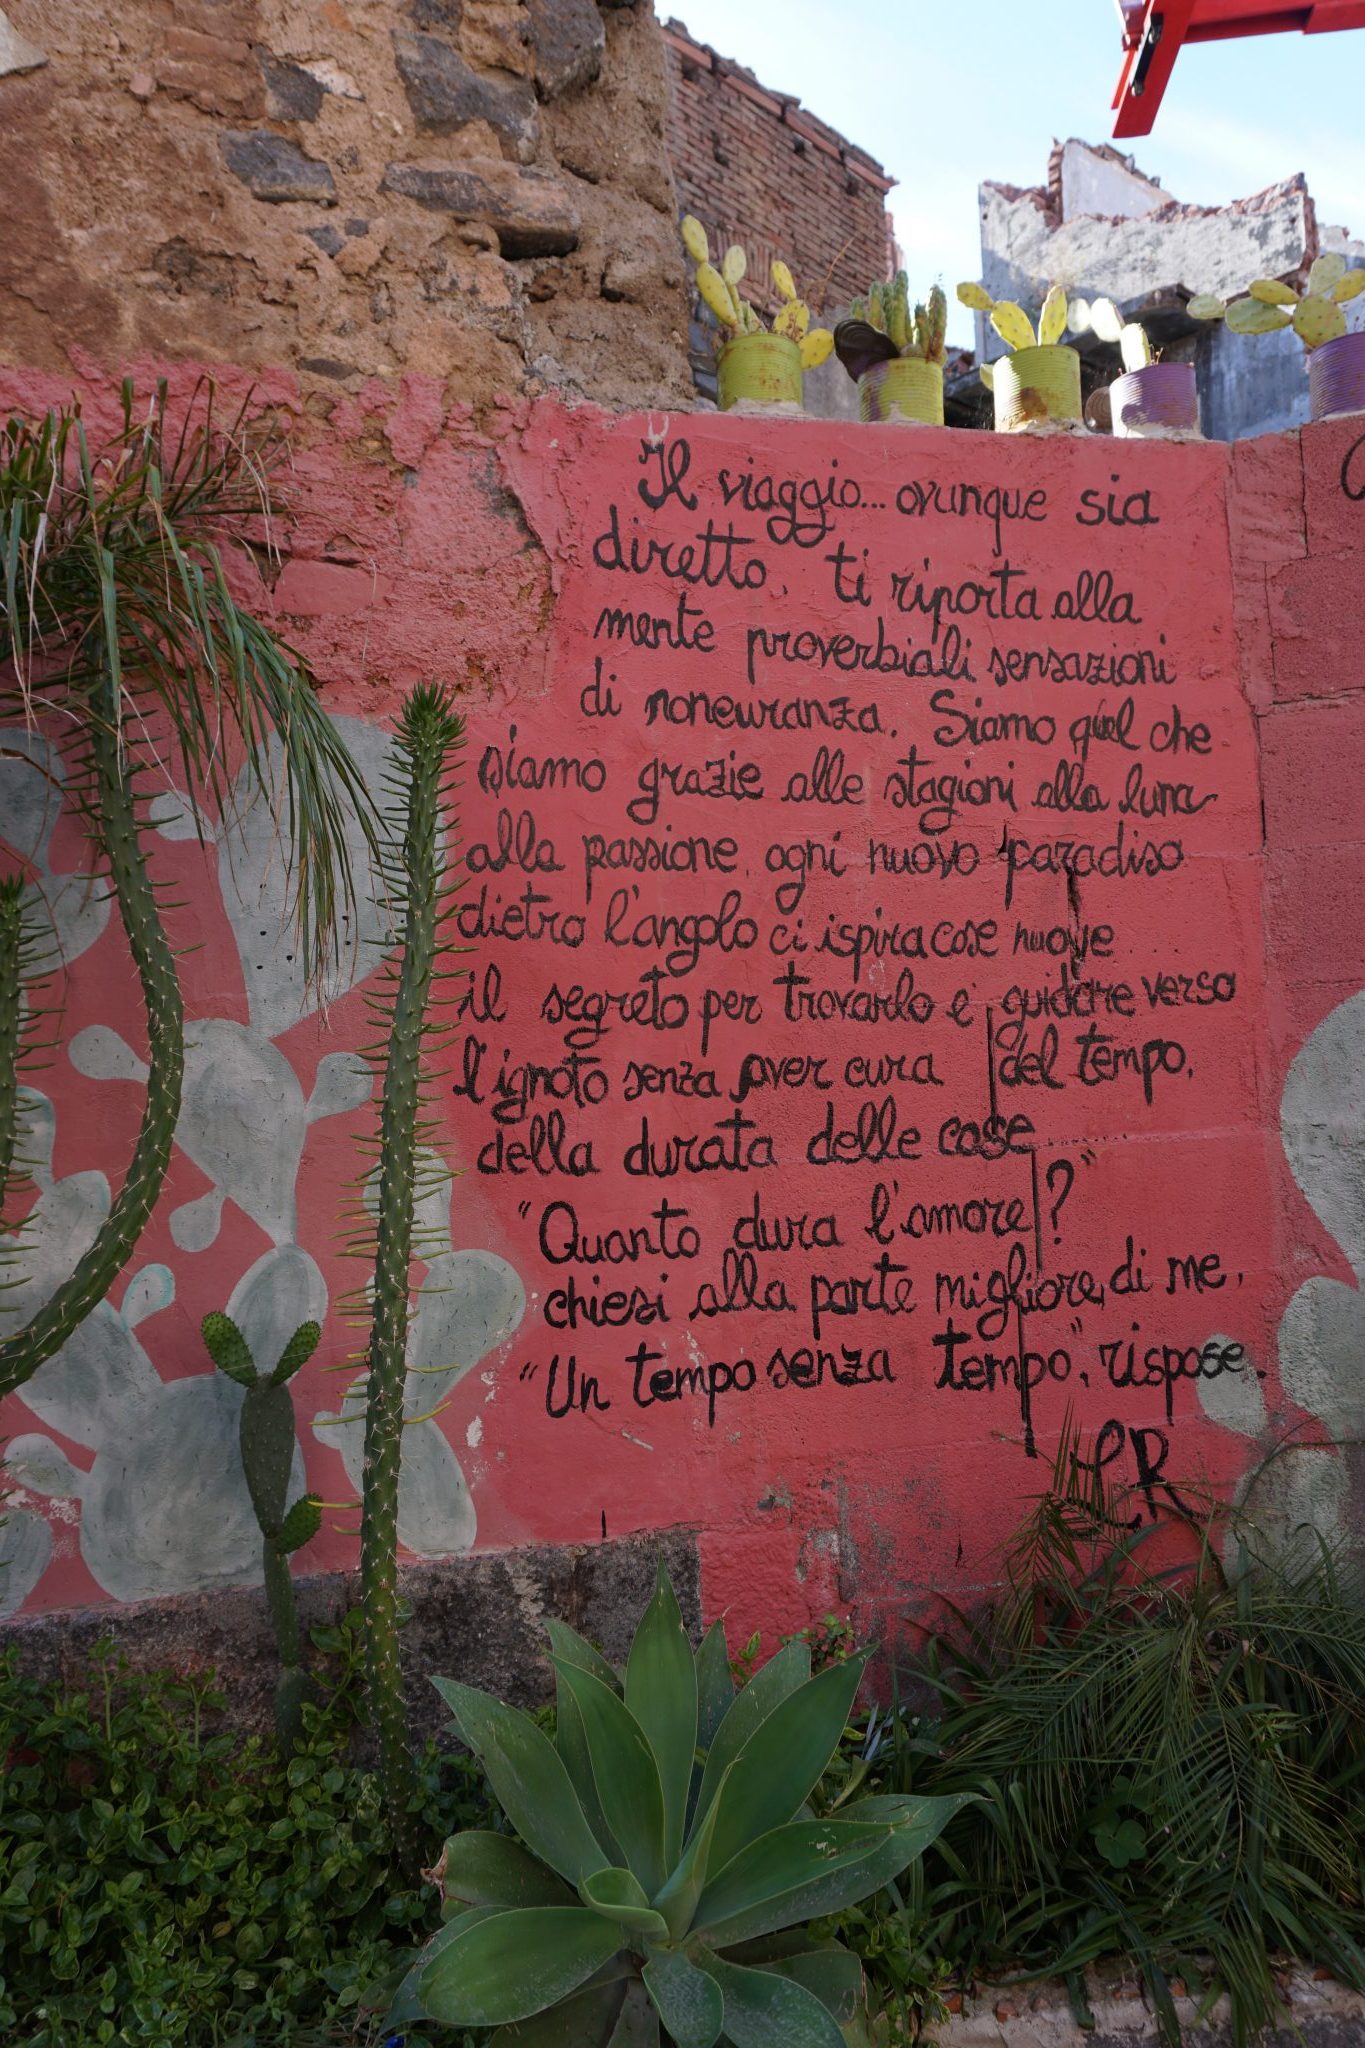 Il viaggio... ovunque sia
diretto, ti riporta alla
mente proverbiali sensazioni
di noneuranza. Siamo quel che
siamo grazie alle stagioni alla luna
alla passione, ogni nuovo paradiso
dietro l'angolo ci ispira cose nuove
il segreto per trovarlo e' guidare verso
l'ignoto senza aver cura del tempo,
della durata delle cose
"Quanto dura l'amore?"
chiesi alla parte migliore di me,
"Un tempo senza tempo", rispose.
LR